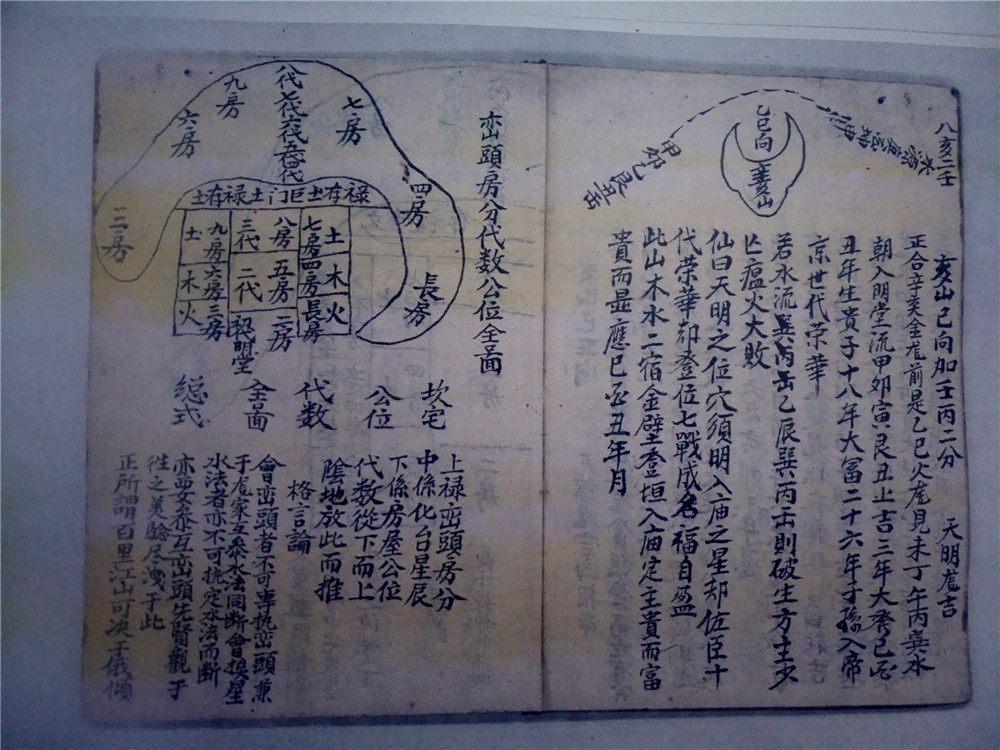 八亥二壬
乙巳向
亥山
甲卯乙艮丑缶
亥山巳向加壬丙二分 天明龙吉
正合辛亥金龙前是乙巳火龙見未丁午丙巽水
朝入明堂流甲卯寅艮丑止吉三年大秀巳酉
丑年生贵子十八年大富二十六年子孫入帝
京世代荣華
若水流巽丙缶乙辰巽丙缶則破生方主少
亡瘟火大敗
仙曰天明之位穴須明入庙之星却佐臣十
代荣華都登位七戰成名福自盈
此山木水二宿金壁登垣入庙定主貴而富
貴而显應巳酉丑年月
峦頭房分代数公位全啚
八代七代六代五代四代
九房
六房
三房
七房
四房
長房
土存禄土门巨土存禄
土 九房 三代 八房 七房 土
木 六房 二代 五房 四房 木
火 三房 初代明堂 二房 長房 火
坎宅
公位
代数
全啚
总式
上禄峦頭房分
中係化台星辰
下係房屋公位
代数從下而上
陰地放此而推
格言論
會曰峦頭者不可專执峦頭兼
于龙家互叅水法同断會挨星
水法者亦不可执定水法而断
亦要叅互峦頭先賢觀于
徃之美驗尽洩于此
正所謂百里江山可决于俄傾